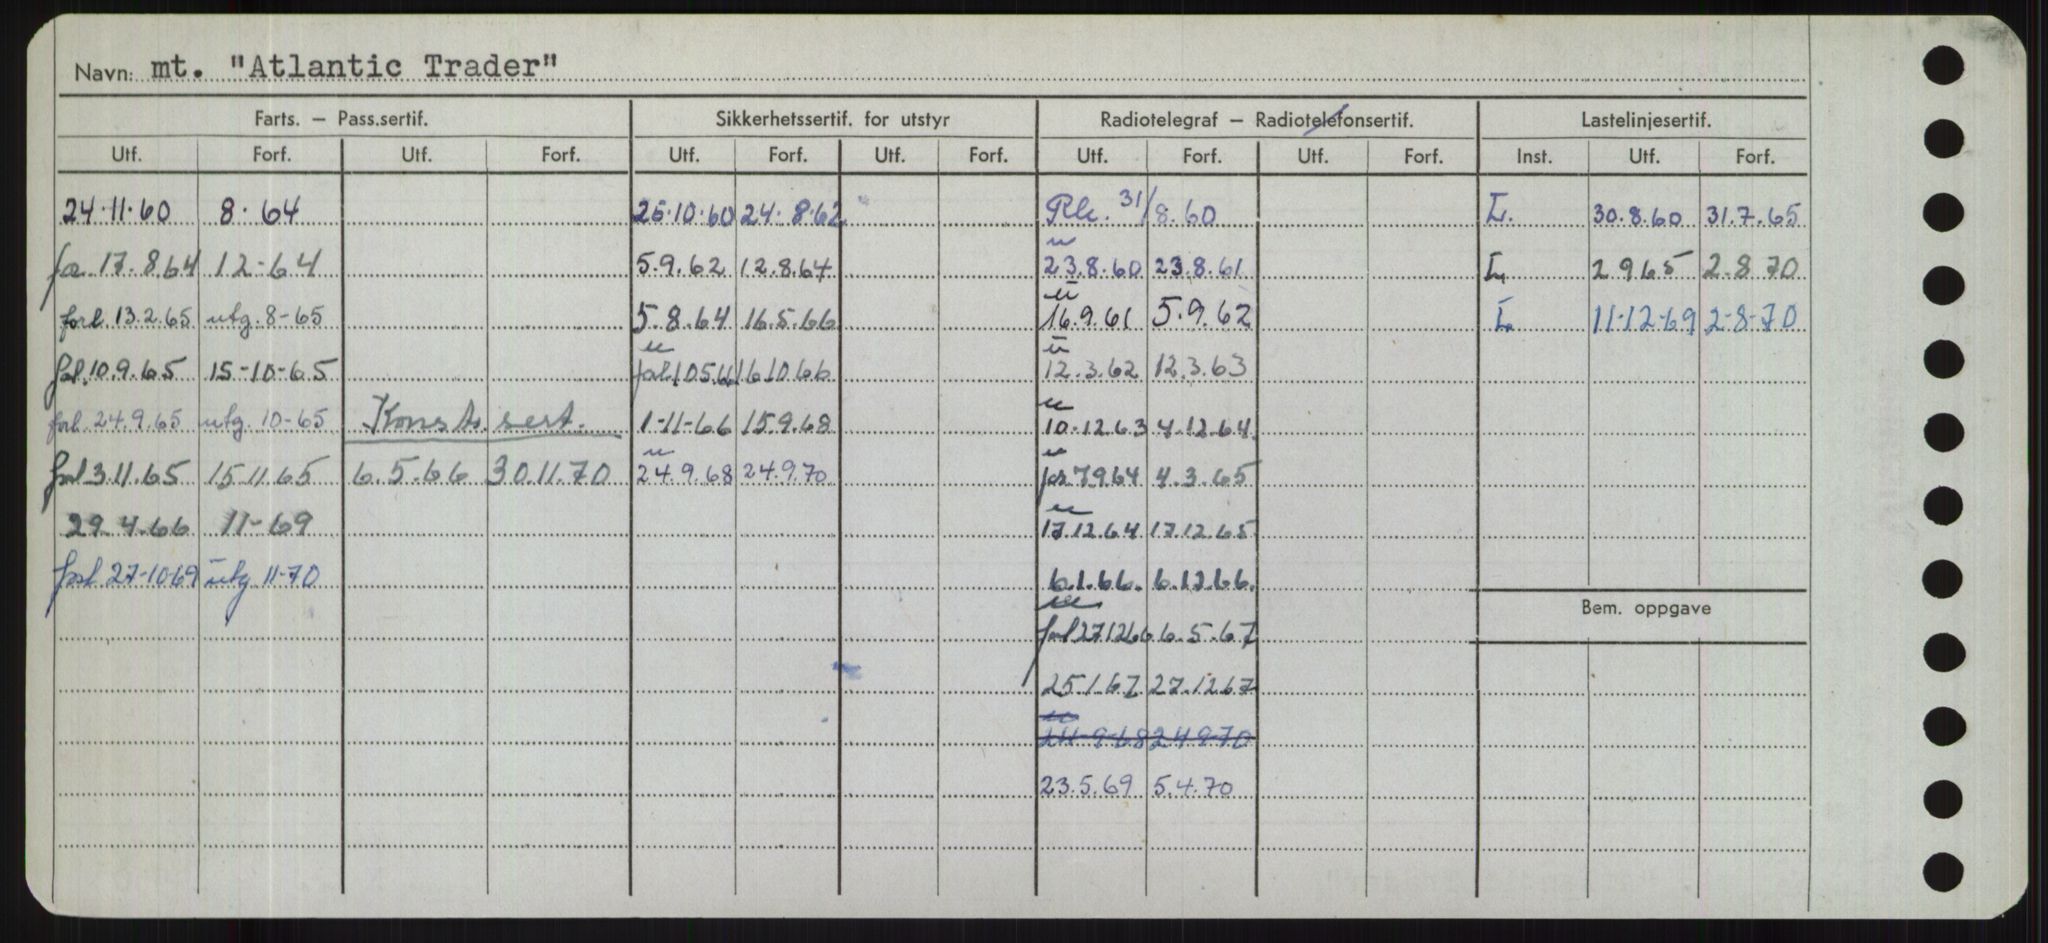 Navn: mt. "Atlantic Trader"
Farts. – Pass.sertif. Sikkerhetssertif. for utstyr Radiotelegraf – Radiotelefonsertif. Lastelinjesertif.
Utf. Forf. Utf. Forf. Utf. Forf. Utf. Forf. Utf. Forf. Utf. Forf. Inst. Utf. Forf.
24.11.60 8.64 25.10.60 24.8.62 31/8.60 L. 30.8.60 31.7.65
17.8.64 12-64 5.9.62 12.8.64 23.8.60 23.8.61 L 2.9.65 2.8.70
forl. 13.2.65 utg. 8-65 5.8.64 16.5.66 16.9.61 5.9.62 L 11-12-69 2-8-70
forl. 10.9.65 15-10-65 forl 10.5.66 16.10.66 12.3.62 12.3.63
forl. 24.9.65 utg. 10-65 Konstr. sert. 1-11-66 15.9.68 10.12.63 4.12.64
forl 3.11.65 15.11.65 6.5.66 30.11.70 24.9.68 24.9.70 for 7.9.64 4.3.65
29.4.66 11-69 17.12.64 17.12.65
forl. 27-10-69 utg 11-70 6.1.66. 6.12.66.
Bem. oppgave
forl 27.12.66 6.5.67
25.1.67 27.12.67
24-9-68 24-9-70
23.5.69 5.4.70